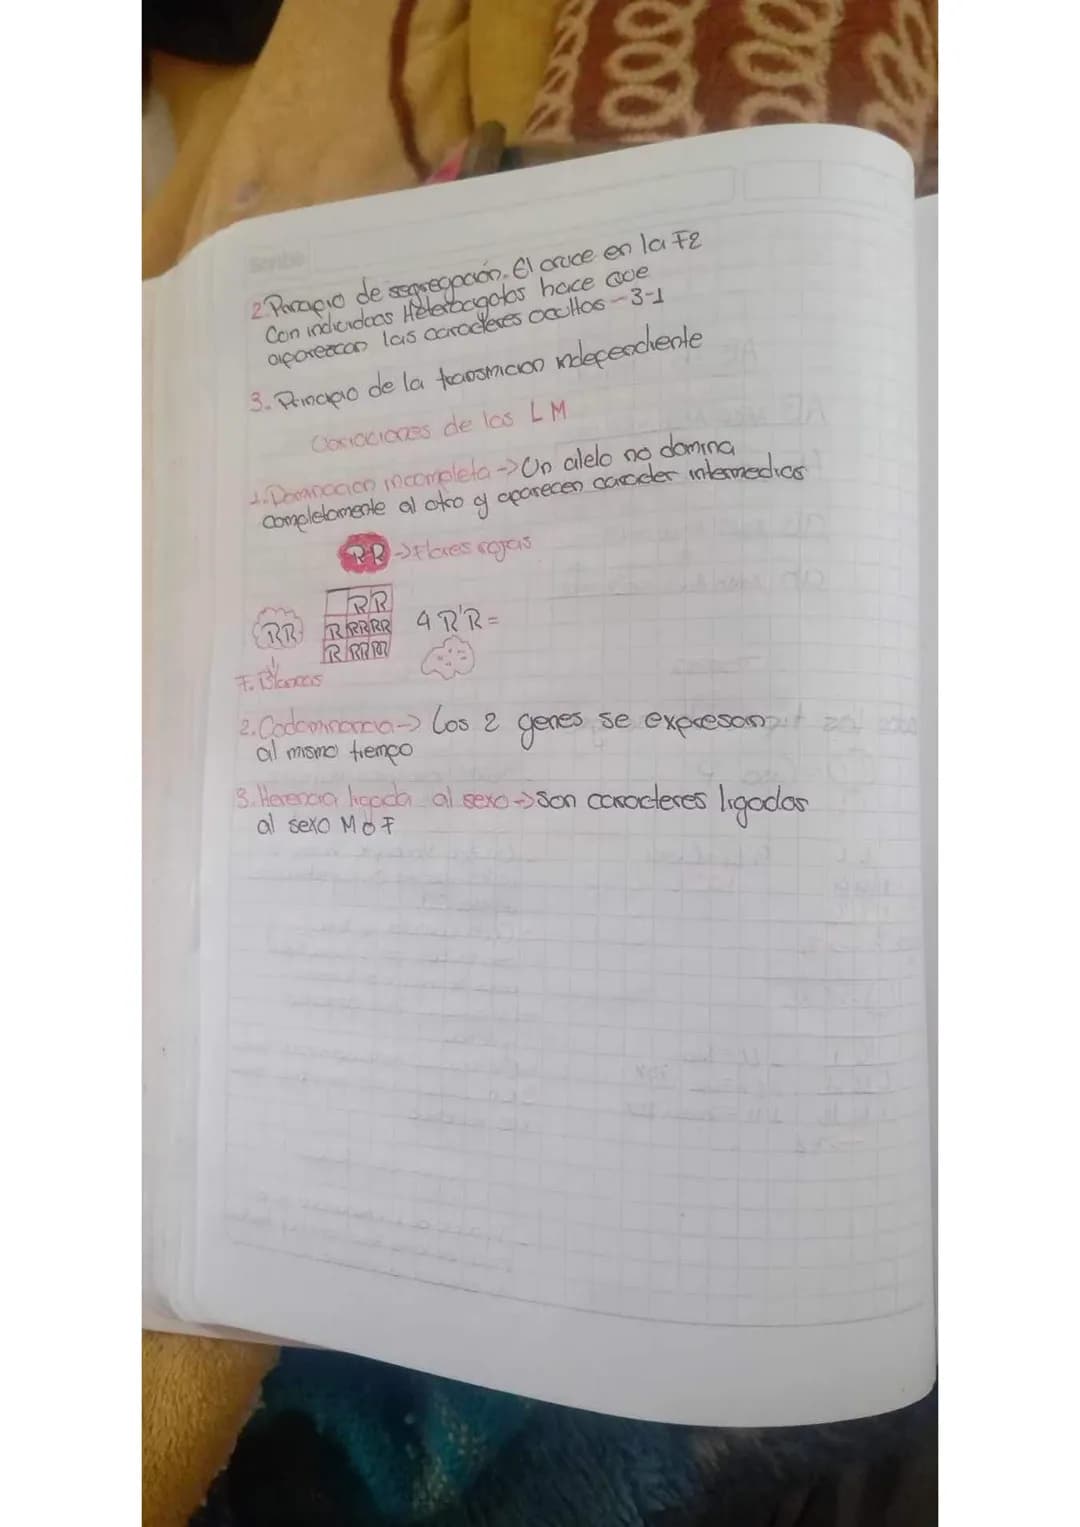 Scribe
2. Principio de segregación. El cruce en la F2
Con individuos Heterocigotos hace que
aparezcan las caracteres ocultos - 3-1
3. Principio de la transmicion independiente
Variaciones de las LM
1. Dominacion incompleta -> Un alelo no domina
completamente al otro y aparecen caracter intermedios
RR -> Flores rojas
RR
RR R RR RR 4 R'R =
R RR RR
F. Blancas
2. Codominancia -> Los 2 genes se expresan
al mismo tiempo
3. Herencia ligada al sexo -> Son caracteres ligados
al sexo M o F